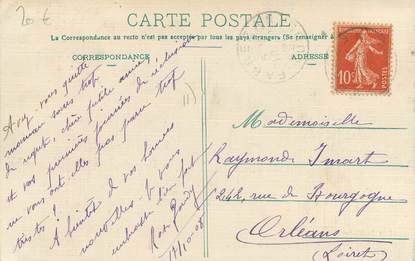 20 €
CARTE POSTALE
La Correspondance au recto n'est pas acceptée par tous les pays étrangers (Se renseigner à
CORRESPONDANCE
ADRESSE
10
POSTES
11)
Avez vous quitté
monsieur sans trop
de regret, chère petite amie
et vos premières journées de réclusion
ne vous ont elles pas parue trop
tristes!
A bientôt de vos bonnes
nouvelles & vous
embrasse bien fort
17/10-08
Mademoiselle
Raymonde Imart
242, rue de Bourgogne
Orléans
(Loiret)